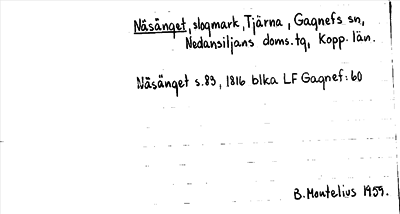 Näsänget, slogmark, Tjärna, Gagnefs sn,
Nedansiljans doms.tg, Kopp. län.
Näsänget s.83, 1816 blka LF Gagnef: 60
B. Montelius 1959.